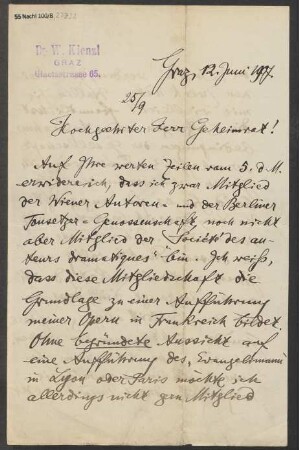 55 Nachl 100/B
Dr. W. Kienzl
GRAZ
65.
Graz, 12. Juni 1907.
25/9
Hochgeehrter Herr Geheimrat!
Auf Ihre werten Zeilen vom 5. d. M.
erwidere ich, dass ich zwar Mitglied
der Wiener Autoren- und der Berliner
Tonsetzer-Genossenschaft, noch nicht
aber Mitglied der "Société des au-
teurs dramatiques" bin. Ich weiß,
dass diese Mitgliedschaft die
Grundlage zu einer Aufführung
meiner Opern in Frankreich bildet.
Ohne begründete Aussicht auf
eine Aufführung des "Evangelimann"
in Lyon oder Paris möchte ich
allerdings nicht gern Mitglied